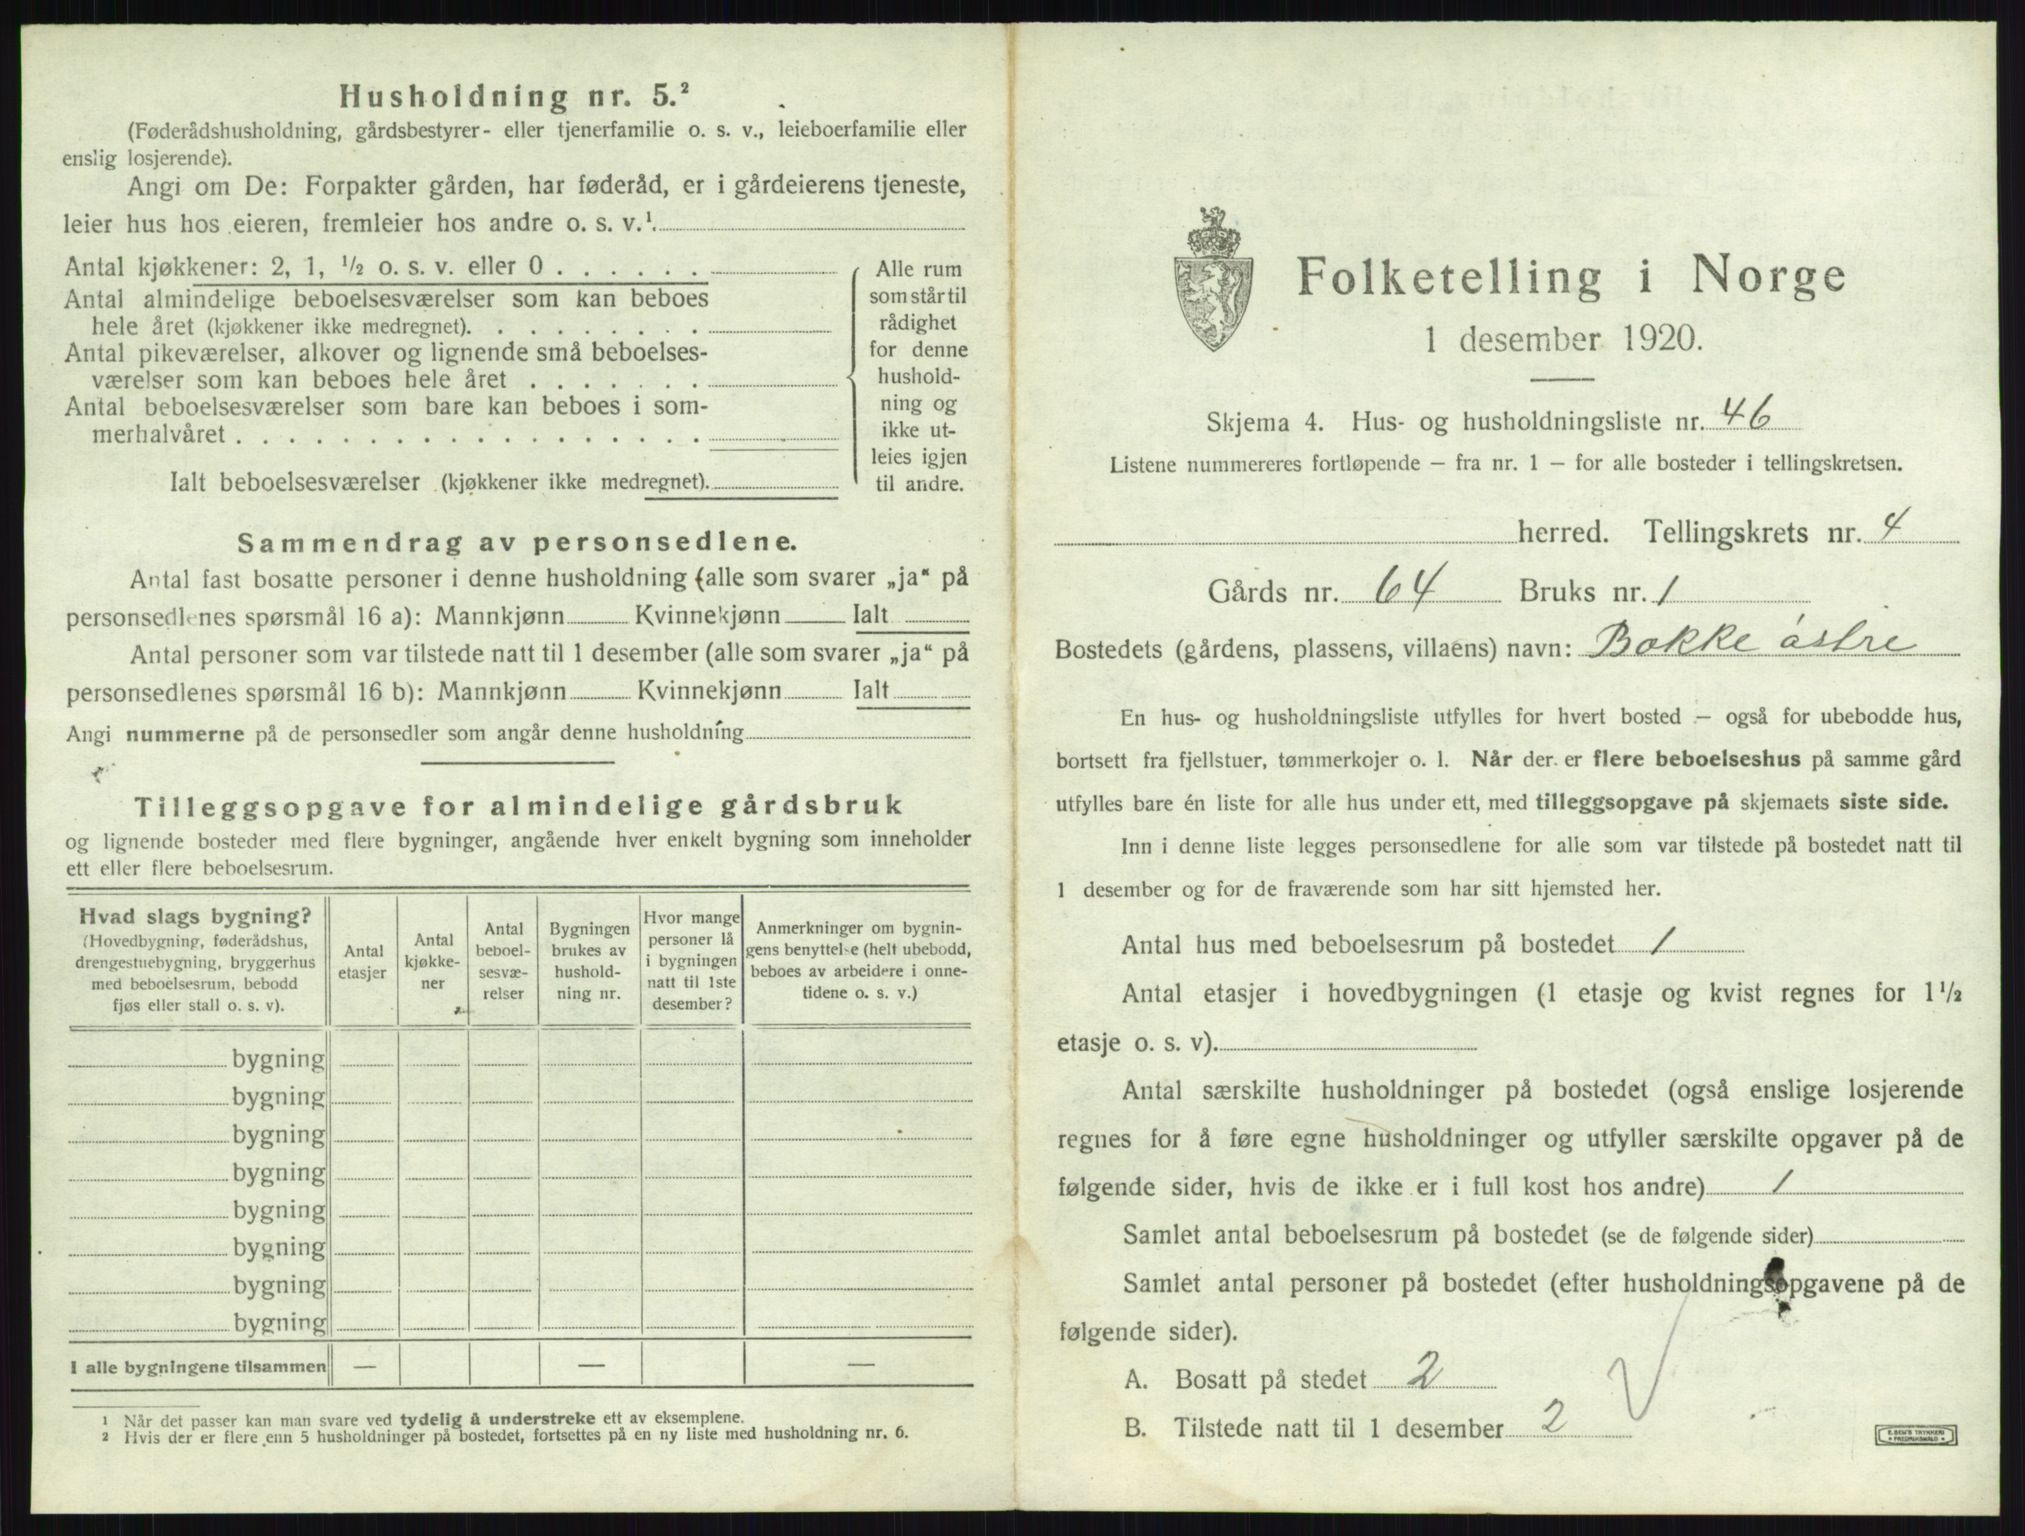 Husholdning nr. 5.²
(Føderådshusholdning, gårdsbestyrer- eller tjenerfamilie o. s. v., leieboerfamilie eller
enslig losjerende).
Angi om De: Forpakter gården, har føderåd, er i gårdeierens tjeneste,
leier hus hos eieren, fremleier hos andre o. s. v.¹.
Antal kjøkkener: 2, 1, ½ o. s. v. eller 0 . . . . . .
Antal almindelige beboelsesværelser som kan beboes
hele året (kjøkkener ikke medregnet). . . . . . . . .
Antal pikeværelser, alkover og lignende små beboelses-
værelser som kan beboes hele året . . . . . . .
Antal beboelsesværelser som bare kan beboes i som-
merhalvåret . . . . . . . . . . . . . . . . . .
Ialt beboelsesværelser (kjøkkener ikke medregnet).
Alle rum
som står til
rådighet
for denne
hushold-
ning og
ikke ut-
leies igjen
til andre.
Sammendrag av personsedlene.
Antal fast bosatte personer i denne husholdning (alle som svarer „ja“ på
personsedlenes spørsmål 16 a): Mannkjønn Kvinnekjønn Ialt
Antal personer som var tilstede natt til 1 desember (alle som svarer „ja“ på
personsedlenes spørsmål 16 b): Mannkjønn Kvinnekjønn Ialt
Angi nummerne på de personsedler som angår denne husholdning
Tilleggsopgave for almindelige gårdsbruk
og lignende bosteder med flere bygninger, angående hver enkelt bygning som inneholder
ett eller flere beboelsesrum.
Hvad slags bygning?
(Hovedbygning, føderådshus,
drengestuebygning, bryggerhus
med beboelsesrum, bebodd
fjøs eller stall o. s. v).
Antal
etasjer
Antal
kjøkke-
ner
Antal
beboel-
sesvæ-
relser
Bygningen
brukes av
hushold-
ning nr.
Hvor mange
personer lå
i bygningen
natt til 1ste
desember?
Anmerkninger om bygnin-
gens benyttelse (helt ubebodd,
beboes av arbeidere i onne-
tidene o. s. v.)
bygning
bygning
bygning
bygning
bygning
bygning
bygning
bygning
I alle bygningene tilsammen — — —
1 Når det passer kan man svare ved tydelig å understreke ett av eksemplene.
2 Hvis der er flere enn 5 husholdninger på bostedet, fortsettes på en ny liste med husholdning nr. 6.
Folketelling i Norge
1 desember 1920.
Skjema 4. Hus- og husholdningsliste nr. 46
Listene nummereres fortløpende — fra nr. 1 — for alle bosteder i tellingskretsen.
herred. Tellingskrets nr. 4
Gårds nr. 64 Bruks nr. 1
Bostedets (gårdens, plassens, villaens) navn: Bakke østre
En hus- og husholdningsliste utfylles for hvert bosted — også for ubebodde hus,
bortsett fra fjellstuer, tømmerkojer o. l. Når der er flere beboelseshus på samme gård
utfylles bare én liste for alle hus under ett, med tilleggsopgave på skjemaets siste side.
Inn i denne liste legges personsedlene for alle som var tilstede på bostedet natt til
1 desember og for de fraværende som har sitt hjemsted her.
Antal hus med beboelsesrum på bostedet 1
Antal etasjer i hovedbygningen (1 etasje og kvist regnes for 1 ½
etasje o. s. v).
Antal særskilte husholdninger på bostedet (også enslige losjerende
regnes for å føre egne husholdninger og utfyller særskilte opgaver på de
følgende sider, hvis de ikke er i full kost hos andre) 1
Samlet antal beboelsesrum på bostedet (se de følgende sider)
Samlet antal personer på bostedet (efter husholdningsopgavene på de
følgende sider).
A. Bosatt på stedet 2
B. Tilstede natt til 1 desember 2
E. SEM'S TRYKKERI
FREDRIKSHALD